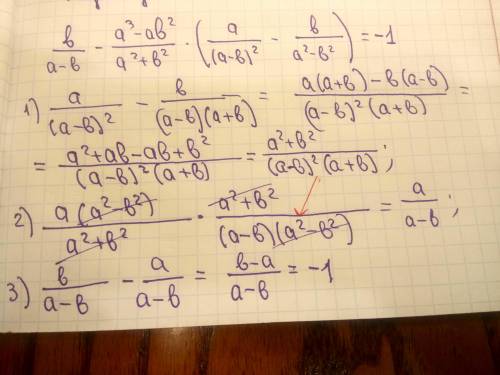 b/(a-b) - (a³-ab²)/(a²+b²) · (a/(a-b)² - b/(a²-b²)) = -1
1) a/(a-b)² - b/((a-b)(a+b)) = (a(a+b)-b(a-b))/((a-b)²(a+b)) =
= (a²+ab-ab+b²)/((a-b)²(a+b)) = (a²+b²)/((a-b)²(a+b));
2) a(a²-b²)/(a²+b²) · (a²+b²)/((a-b)(a²-b²)) = a/(a-b);
3) b/(a-b) - a/(a-b) = (b-a)/(a-b) = -1